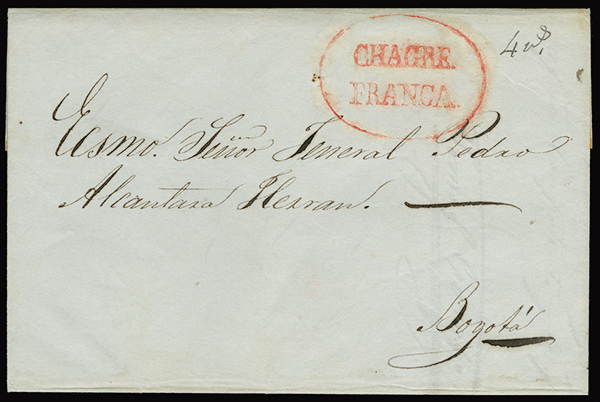 CHAGRE.
FRANCA.
4 rs.
Ecsmo. Señor Jeneral Pedro
Alcantara Herran.
Bogotá